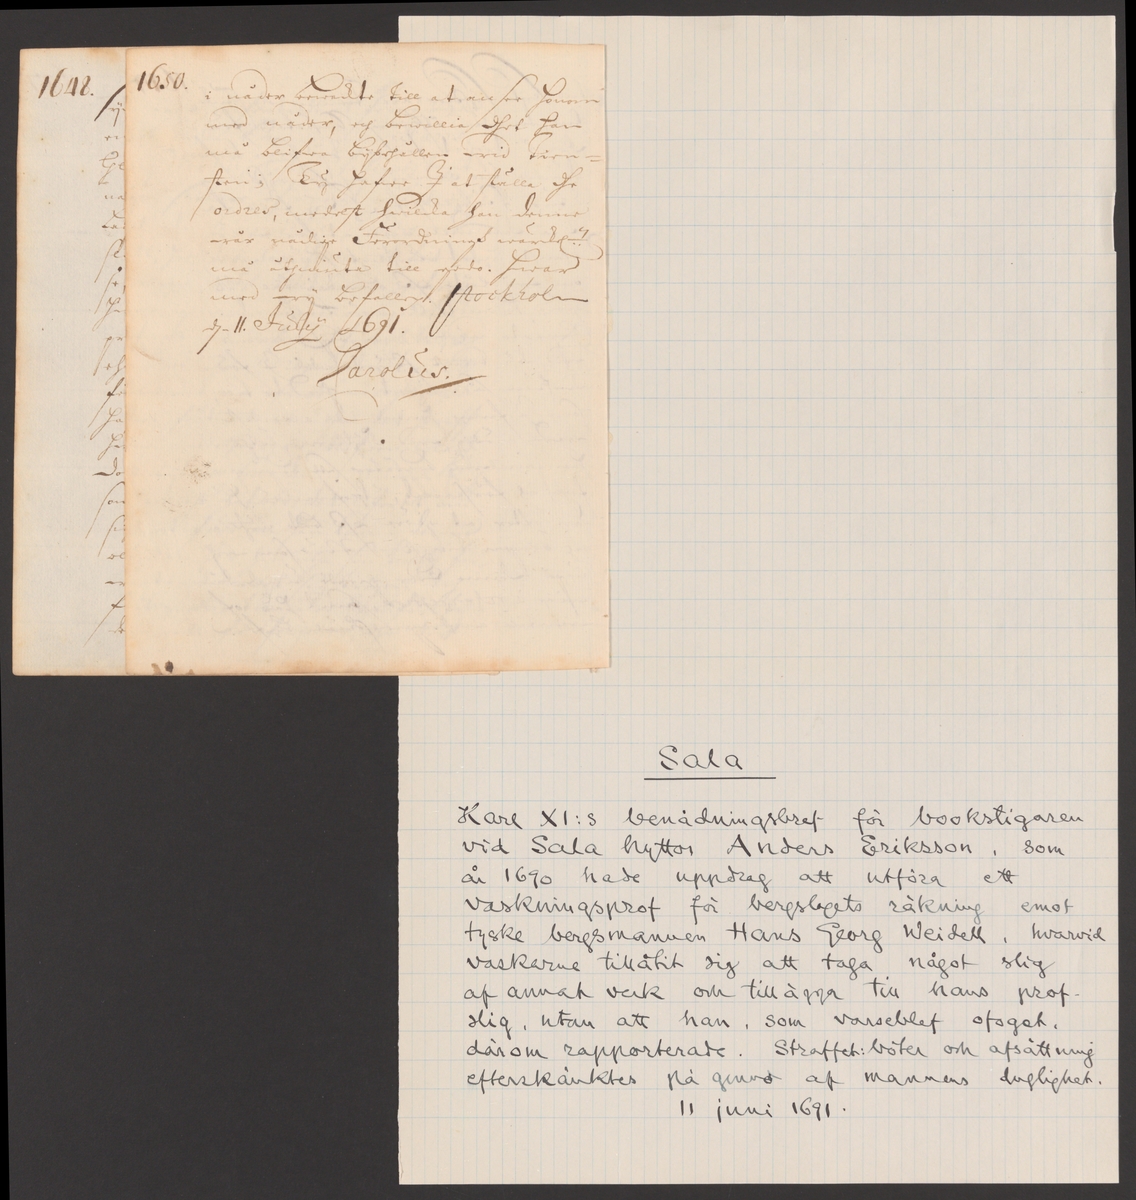 1642.
1650.
i nåder bewekte till at ansee honom
med nåder, och bewillia dhet han
må blifwa bijbehållen wid tien=
sten; Ty hafwe I at ställa the
ordres, medelst hwilka han denne
wår nådige Förordning
må åthniuta till godo. Hwar
med wij befalle. Stockholm
d. 11. Julij 1691.
Carolus.
Sala
Karl XI:s benådningsbref för bookstigaren
vid Sala hyttor Anders Eriksson, som
år 1690 hade uppdrag att utföra ett
vaskningsprof för bergslagets räkning emot
tyske bergsmannen Hans Georg Weidell, hvarvid
vaskarne tillåtit sig att taga något slig
af annat verk och tillägga till hans prof-
slig, utan att han, som varseblef ofoget,
därom rapporterade. Straffet: böter och afsättning
efterskänktes på grund af mannens duglighet.
11 juni 1691.